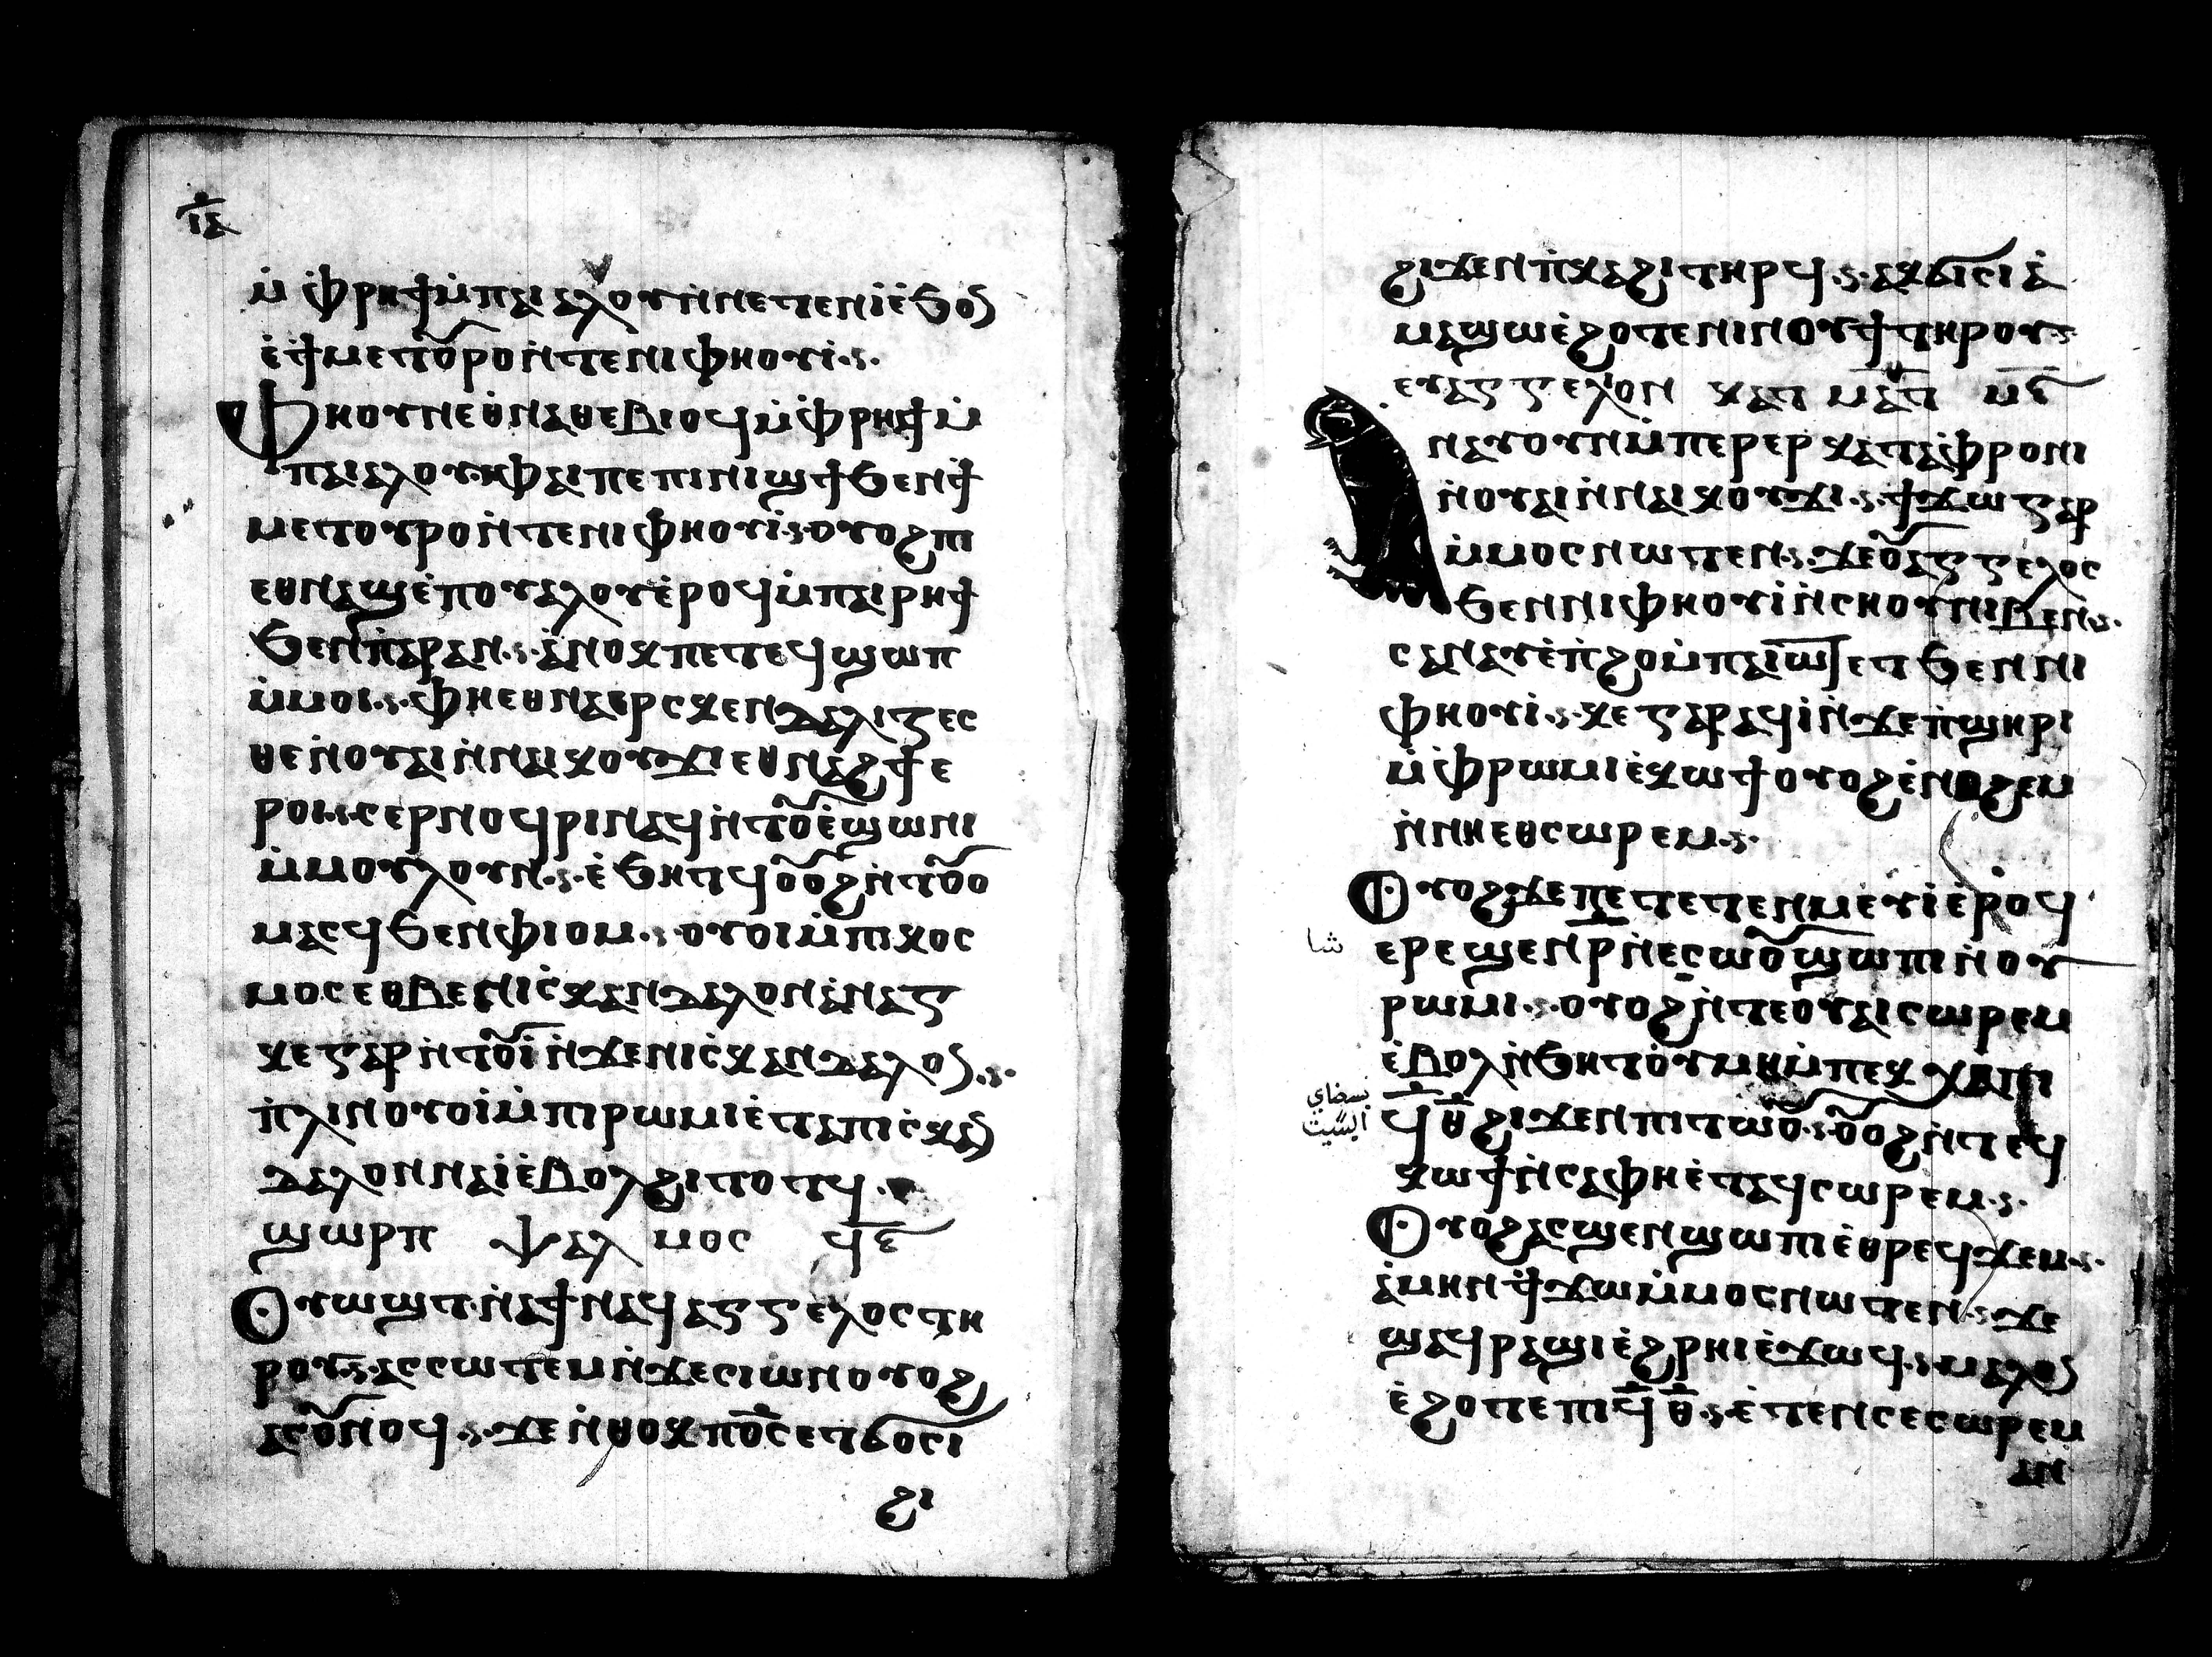 ⲓⲁ
ⲙ̇ⲫⲣⲏϯⲙ̇ⲡⲁⲓⲁⲗⲟⲩⲛ̇ⲛⲉⲧⲉⲛⲓ̇ⲉ̇ϧⲟⲩ
ⲉ̇ϯⲙⲉⲧⲟⲩⲣⲟⲛ̇ⲧⲉⲛⲓⲫⲏⲟⲩⲓ̇
ⲫⲏⲟⲩⲛⲉⲑⲛⲁⲑⲉⲃⲓⲟϥⲙ̇ⲫⲣⲏϯⲙ̇
ⲡⲁⲓⲁⲗⲟⲩⲫⲁⲓⲡⲉⲡⲓⲛⲓϣϯϧⲉⲛϯ
ⲙⲉⲧⲟⲩⲣⲟⲛ̇ⲧⲉⲛⲓⲫⲏⲟⲩⲓ̇ⲟⲩⲟϩⲡⲓ
ⲉⲑⲛⲁϣⲉ̇ⲡⲟⲩⲁⲗⲟⲩⲉ̇ⲣⲟϥⲙ̇ⲡⲁⲓⲣⲏϯ
ϧⲉⲛⲡⲁⲣⲁⲛ ⲁ̇ⲛⲟⲕⲡⲉⲧⲉϥϣⲱⲡ
ⲙ̇ⲙⲟⲓ ⲫⲏⲉⲑⲛⲁⲉⲣⲥⲕⲉⲛⲇⲁⲗⲓⲍⲉⲥ
ⲑⲉⲛ̇ⲟⲩⲁⲓⲛ̇ⲛⲁⲓⲕⲟⲩϫⲓⲉⲑⲛⲁϩϯⲉ
ⲣⲟⲓ ⲥⲉⲣⲛⲟϥⲣⲓⲛⲁϥⲛ̇ⲧⲟⲩⲉ̇ϣⲱⲛⲓ
ⲙ̇ⲙⲟⲩⲗⲟⲩⲛ ⲉ̇ϧⲏⲧϥⲟⲩⲟϩⲛ̇ⲧⲟⲩⲟ
ⲙⲁⲥϥϧⲉⲛⲫⲓⲟⲙ ⲟⲩⲟⲓⲙ̇ⲡⲓⲕⲟⲥ
ⲙⲟⲥⲉⲑⲃⲉⲛⲓⲥ̇ⲕⲁⲛⲇⲁⲗⲟⲛⲁ̇ⲛⲁⲅ
ⲕⲉⲅⲁⲣⲛ̇ⲧⲟⲩⲓ̇ⲛ̇ϫⲉⲛⲓⲥ̇ⲕⲁⲛⲇⲁⲗⲟⲛ
ⲡ̇ⲗⲓⲛⲟⲩⲟⲓ̇ⲙ̇ⲡⲓⲣⲱⲙⲓⲉ̇ⲧⲁⲡⲓⲥ̇ⲕⲁⲛ
ⲇⲁⲗⲟⲛⲛⲁⲓ̇ⲉ̇ⲃⲟⲗϩⲓⲧⲟⲧϥ
ϣⲱⲣⲡ ⲯⲁⲗⲙⲟⲥ ϥⲋ
ⲟⲩⲱϣⲧⲛ̇ⲁϥⲛⲁϥⲁⲅⲅⲉⲗⲟⲥⲧⲏ
ⲣⲟⲩⲁⲥⲥⲱⲧⲉⲙⲛ̇ϫⲉⲥⲓⲱⲛⲟⲩⲟϩ
ⲁⲥⲟⲩⲛⲟϥ ϫⲉⲛ̇ⲑⲟⲕⲡⲟ̅ⲥ̅ⲉⲧϭⲟⲥⲓ
ϩⲓ
ϩⲓϫⲉⲛⲡ̇ⲕⲁϩⲓⲧⲏⲣϥ ⲁⲕϭⲓⲥⲓⲁ̇
ⲙⲁϣⲱⲉ̇ϩⲟⲧⲉⲛⲓⲛⲟⲩϯⲧⲏⲣⲟⲩ
ⲉⲩⲁⲅⲅⲉⲗⲓⲟⲛ ⲕⲁⲧ ⲙⲁⲧ
ⲁⲛⲁⲩⲟⲩⲛⲙ̇ⲡⲉⲣⲉⲣⲕⲁⲧⲁⲫⲣⲟⲛⲓ
ⲛ̇ⲟⲩⲁⲓⲛ̇ⲛⲁⲓⲕⲟⲩϫⲓ ϯϫⲱⲅⲁⲣ
ⲙ̇ⲙⲟⲥⲛⲱⲧⲉⲛ ϫⲉⲟⲩⲁⲅⲅⲉⲗⲟⲥ
ϧⲉⲛⲛⲓⲫⲏⲟⲩⲓ̇ⲛ̇ⲥⲏⲟⲩⲛⲓⲃⲉⲛ
ⲥⲁⲛⲁⲩⲉ̇ⲡ̇ϩⲟⲙ̇ⲡⲁⲓⲱⲧⲉⲧϧⲉⲛⲛⲓ
ⲫⲏⲟⲩⲓ̇ ⲕⲉⲅⲁⲣⲁϥⲓ̇ⲛ̇ϫⲉⲡ̇ϣⲏⲣⲓ
ⲙ̇ⲫⲣⲱⲙⲓⲉ̇ⲕⲱϯⲟⲩⲟϩⲉ̇ⲛⲟϩⲉⲙ
ⲛ̇ⲛⲏⲉⲑⲥⲱⲣⲉⲙ
ⲟⲩⲟϩϫⲉⲡⲉⲧⲉⲧⲉⲛⲙⲉⲩⲓ̇ⲉ̇ⲣⲟϥ
شا
ⲉⲣⲉϣⲉⲛⲣⲛ̇ⲉⲥⲱⲟⲩϣⲱⲡⲓⲛ̇ⲟⲩ
ⲣⲱⲙⲓ ⲟⲩⲟϩⲛ̇ⲧⲉⲟⲩⲁⲓⲥⲱⲣⲉⲙ
ⲉ̇ⲃⲟⲗⲛ̇ϧⲏⲧⲟⲩⲙⲏⲙ̇ⲡⲉϥⲭⲁⲡⲓ
ϥ̅ⲑ̅ϩⲓϫⲉⲛⲡⲓⲧⲱⲟⲩ ⲟⲩⲟϩⲛ̇ⲧⲉϥ
ⲕⲱϯⲛ̇ⲥⲁⲫⲏⲉ̇ⲧⲁϥⲥⲱⲣⲉⲙ
ⲟⲩⲟϩⲁⲥϣⲉⲛϣⲱⲡⲓⲉ̇ⲑⲣⲉϥϫⲉⲙϥ
ⲁ̇ⲙⲏⲛϯϫⲱⲙ̇ⲙⲟⲥⲛⲱⲧⲉⲛ ϫⲉ
ϣⲁϥⲣⲁϣⲓⲉ̇ϩⲣⲏⲓⲉ̇ϫⲱϥ ⲙⲁⲗⲗⲟⲛ
ⲉ̇ϩⲟⲧⲉⲡⲓϥ̅ⲑ̅ ⲉ̇ⲧⲉⲛⲥⲉⲥⲱⲣⲉⲙ
ⲁⲛ